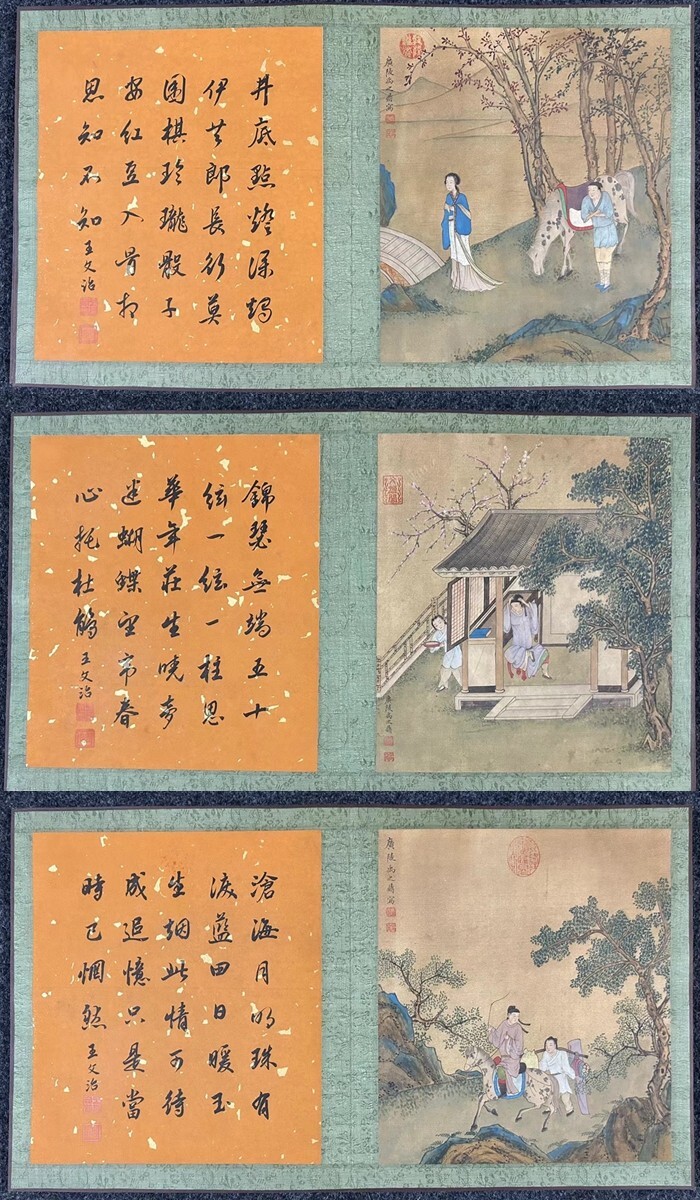 廣陵禹之鼎寫
井底點燈深燭
伊共郎長行莫
圍棋玲瓏骰子
安紅豆入骨相
思知不知
王文治
廣陵禹之鼎
錦瑟無端五十
絃一絃一柱思
華年莊生曉夢
迷蝴蝶望帝春
心托杜鵑
王文治
廣陵禹之鼎寫
滄海月明珠有
淚藍田日暖玉
生烟此情可待
成追憶只是當
時已惘然
王文治